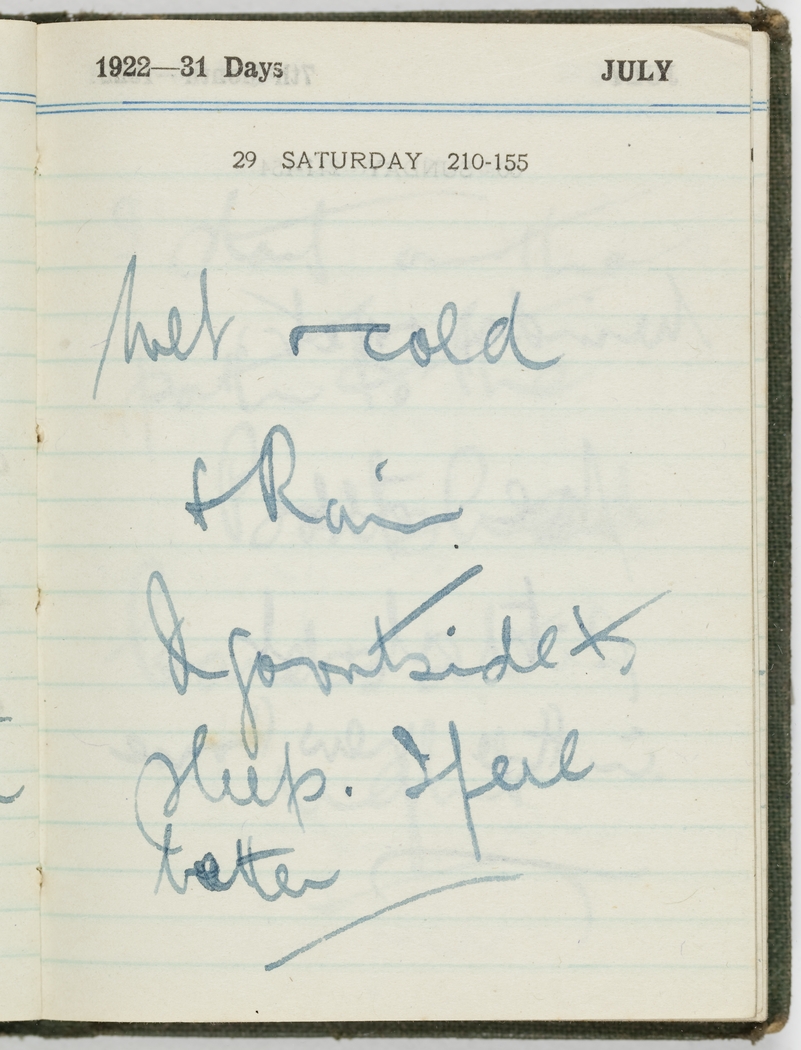 1922—31 Days JULY
29 SATURDAY 210-155
Wet & cold
& Rain
I go outside to
sleep. I feel
better